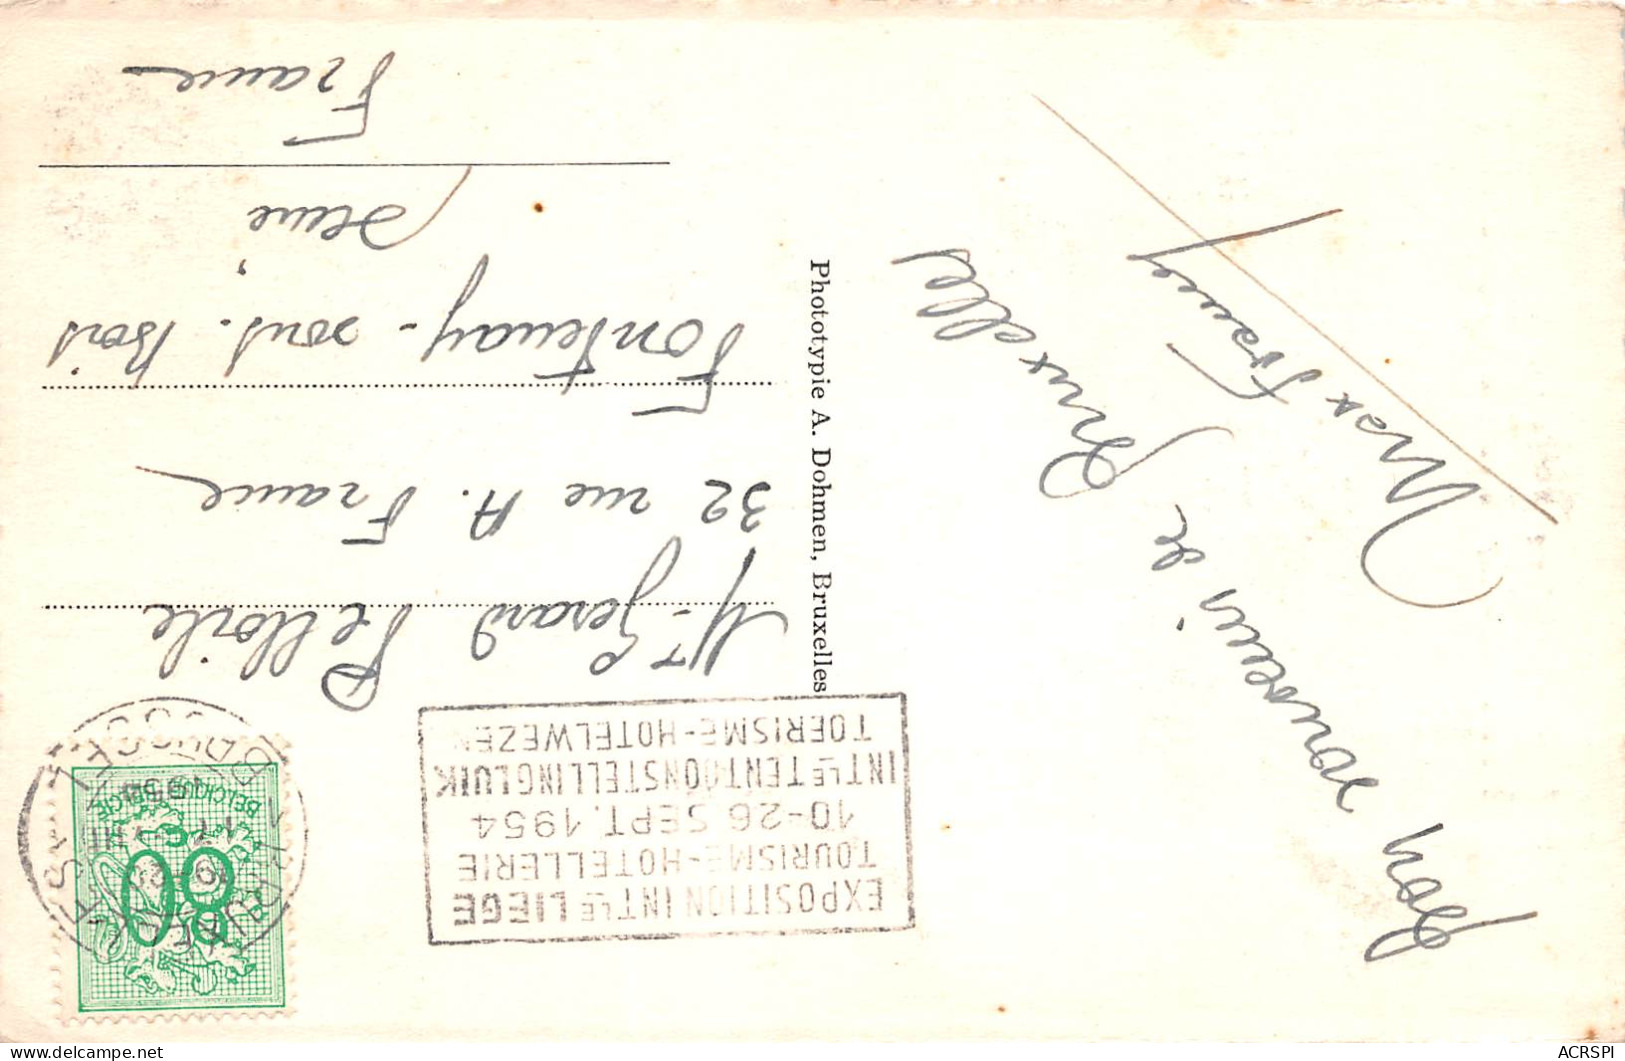 Bon souvenir de Bruxelles
Max Franey
Mr Gerard Pelloile
32 rue A. France
Fontenay-sous-Bois
Seine
France
Phototypie A. Dohmen, Bruxelles
EXPOSITION INTLE LIEGE
TOURISME-HOTELLERIE
10-26 SEPT. 1954
INTLE TENTOONSTELLING LUIK
TOERISME-HOTELWEZEN
BELGIQUE BELGIE
80
delcampe.net
ACRSPI